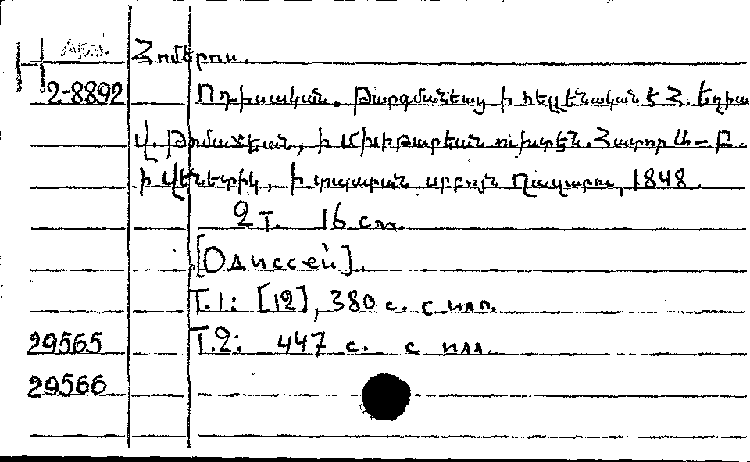 Н Арм. Հոմերոս.
2-8892 Ոդիսական. Թարգմանեաց ի հելլենականէ Հ. Եղիա
վ. Թոմաճեան, ի Մխիթարեան ուխտէն. Հատոր Ա-Բ.
ի Վենետիկ, ի տպարան սրբոյն Ղազարու, 1848.
2 т. 16 cm.
[Одиссей].
Т.1: [12], 380 с. с илл.
29565 Т.2: 447 с. с илл.
29566